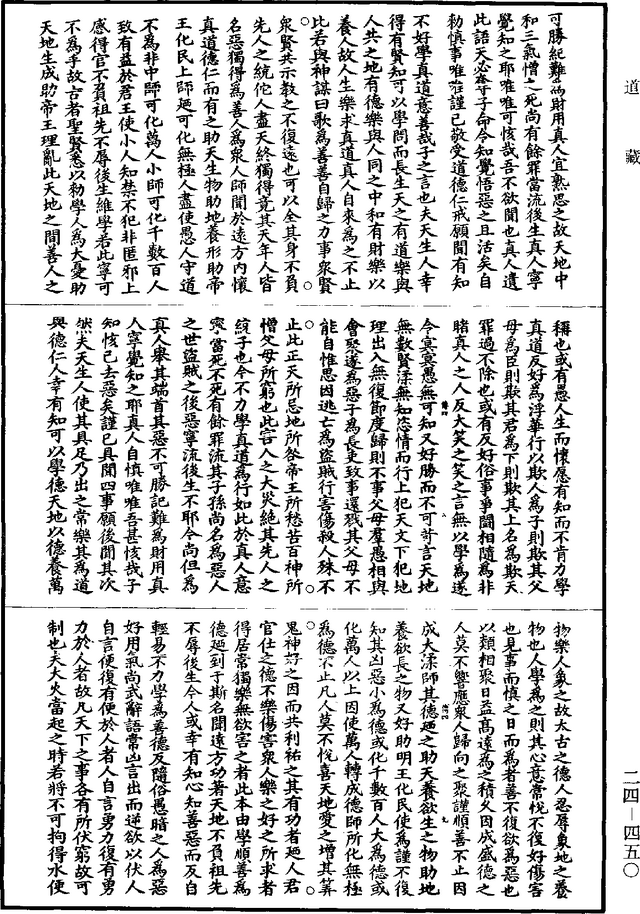 道藏
可勝紀難為財用真人宜熟思之故天地中
和三氣憎之死尚有餘罪當流後生真人寧
覺知之耶唯唯可恢哉吾不欲聞也真人遺
此語天必奪子命令知覺悟惡之且活矣自
勑慎事唯唯謹已敬受道德仁戒願聞有知
不好學真道意善哉子之言也夫天生人幸
得有賢知可以學問而長生天之有道樂與
人共之地有德樂與人同之中和有財樂以
養人故人生樂求真道真人自來為之不止
比若與神謀日歌為善善自歸之力事衆賢
衆賢共示教之不復遠也可以全其身不負
先人之統佗人盡夭終獨得竟其天年人皆
名惡獨得為善人為衆人師聞於遠方內懷
真道德仁而有之助天生物助地養形助帝
王化民上師迺可化無極人盡使愚人守道
不為非中師可化萬人小師可化千數百人
致有益於君王使小人知禁不犯非匿邪上
感得官不負祖先不辱後生維學若此寧可
不為乎故古者聖賢悉以勑學人為大憂助
天地生成助帝王理亂此天地之間善人之
稱也或有愚人生而懷愿有知而不肯力學
真道反好為浮華行以欺人為子則欺其父
母為臣則欺其君為下則欺其上名為欺天
罪過不除也或有反好俗事爭鬪相隨為非
睹真人之人反大笑之笑之言無以學為遂
令冥冥愚無可知又好勝而不可苛言天地
無數賢渘無知恣情而行上犯天文下犯地
理出入無復節度歸則不事父母羣愚相與
會聚遂為惡子為長吏致事還戮其父母不
能自惟思因逃亡為盜賊行害傷殺人殊不
止此正天所忌地所咎帝王所愁苦百神所
憎父母所窮也此言人之大災絶其先人之
綂子也令不力學真道為行如此於真人意
寧當死不死有餘罪流其子孫尚名為惡人
之世盜賊之後惡寧流後生不耶今尚但為
真人舉其端首其惡不可勝記難為財用真
人寧覺知之耶真人自慎唯唯吾甚恢哉子
知恢已去惡矣謹已具聞四事願後聞其次
然夫天生人使其具足乃出之常樂其為道
與德仁人幸有知可以學德天地以德養萬
物樂人象之故太古之德人忍辱象地之養
物也人學為之則其心意常悅不復好傷害
也見事而慎之日而為者善不復欲為惡也
以類相聚日益高遠為之積久因成盛德之
人莫不響應衆人歸向之聚謹順善不止因
成大渘師其德迺之助天養欲生之物助地
養欲長之物又好助明王化民使為謹不復
知其凶惡小為德或化千數百人大為德或
化萬人以上因使萬人轉成德師所化無極
為德不止凡人莫不悅喜天地愛之增其筭
鬼神好之因而共利祐之其有功者迺人君
官仕之德不樂傷害衆人樂之好之所求者
得居常獨樂無欲害之者此本由學順善為
德迺到于斯名聞遠方功著天地不負祖先
不辱後生今人或幸有知心知善惡而反自
輕易不力學為善德反隨俗愚暗之人為惡
好用氣尚武辭語常凶言出而逆欲以伏人
自言便復有便於人者人自言勇力復有勇
力於人者故凡天下之事各有所伏窮故可
制也夫大火當起之時若將不可拘得水便
二四—四五〇